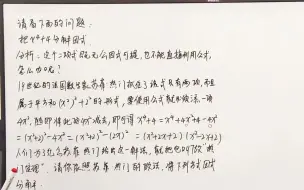 请看下面的问题:
把x⁴+4分解因式
分析: 这个二项式既无公因式可提, 也不能直接利用公式,
怎么办呢?
19世纪的法国数学家苏菲·热门抓住了该式只有两项, 而且
属于平方和(x²)²+2²的形式, 要使用公式就必须添一项
4x², 随即将此项4x²减去, 即可得x⁴+4=x⁴+4x²+4-4x²
=(x²+2)²-4x²=(x²+2)²-(2x)²=(x²+2x+2)(x²-2x+2)
人们为了纪念苏菲·热门给出这一解法, 就把它叫做"热
门定理". 请你依照苏菲·热门的做法, 将下列各式因式
分解: